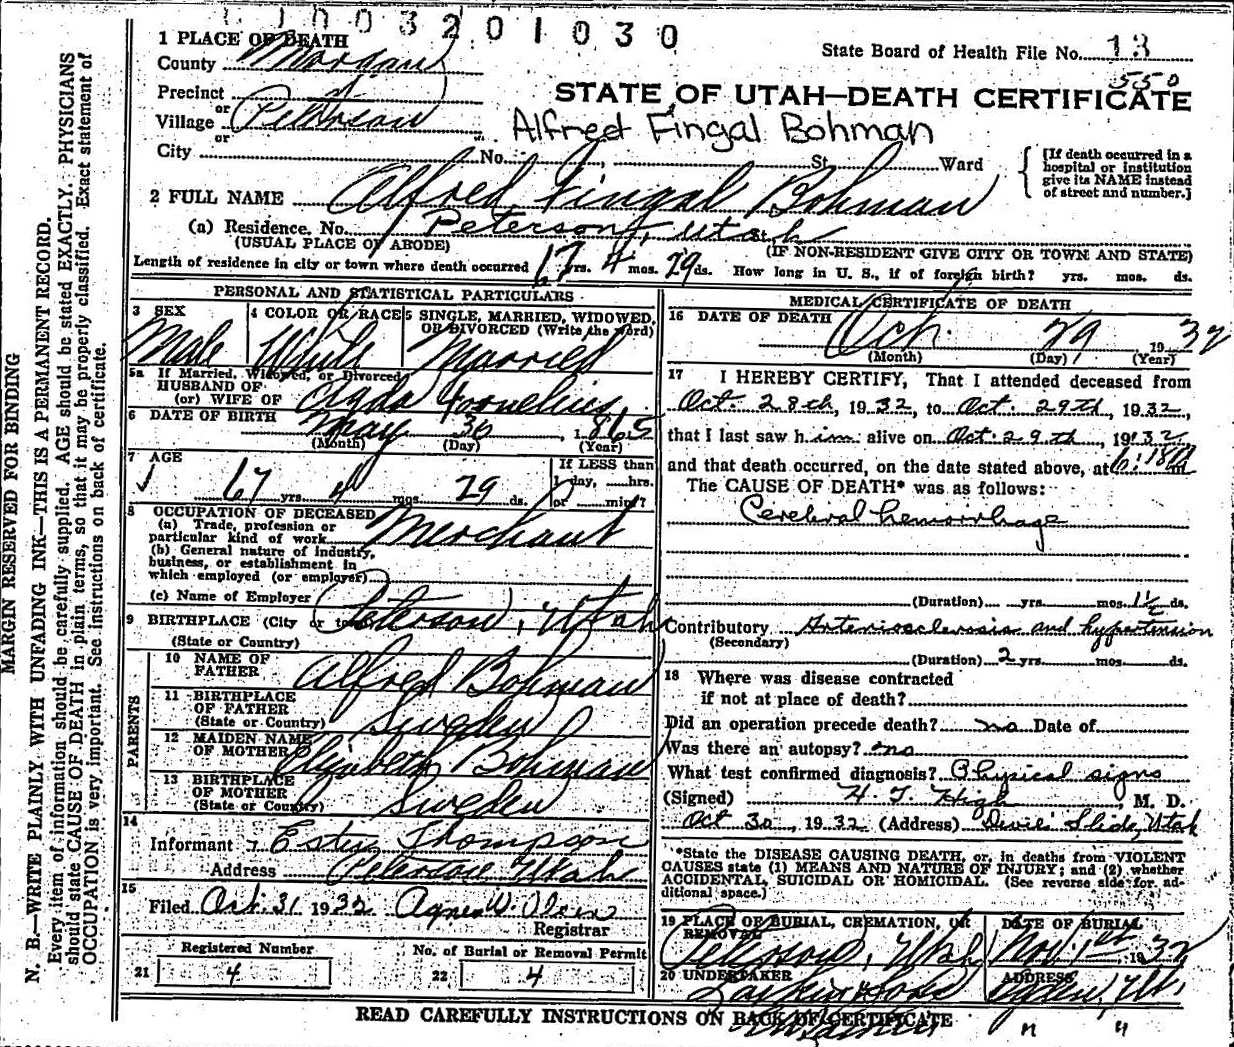 1003201030
State Board of Health File No. 13
550
STATE OF UTAH—DEATH CERTIFICATE
Alfred Fingal Bohman
1 PLACE OF DEATH
County Morgan
Precinct
or
Village Peterson
or
City No. St. Ward
[If death occurred in a hospital or institution give its NAME instead of street and number.]
2 FULL NAME Alfred Fingal Bohman
(a) Residence, No. Peterson, Utah St.
(USUAL PLACE OF ABODE) (IF NON-RESIDENT GIVE CITY OR TOWN AND STATE)
Length of residence in city or town where death occurred yrs. 4 mos. 29 ds. How long in U. S., if of foreign birth? yrs. mos. ds.
PERSONAL AND STATISTICAL PARTICULARS
3 SEX Male
4 COLOR OR RACE White
5 SINGLE, MARRIED, WIDOWED, OR DIVORCED (Write the word) Married
5a If Married, Widowed, or Divorced
HUSBAND OF
(or) WIFE OF
6 DATE OF BIRTH May 30, 1865
(Month) (Day) (Year)
7 AGE
67 yrs. 4 mos. 29 ds.
If LESS than
1 day, hrs.
or min.?
8 OCCUPATION OF DECEASED
(a) Trade, profession or
particular kind of work Merchant
(b) General nature of industry,
business, or establishment in
which employed (or employer)
(c) Name of Employer
9 BIRTHPLACE (City or town) Peterson, Utah
(State or Country)
PARENTS
10 NAME OF FATHER Alfred Bohman
11 BIRTHPLACE OF FATHER (State or Country) Sweden
12 MAIDEN NAME OF MOTHER Elizabeth Bohman
13 BIRTHPLACE OF MOTHER (State or Country) Sweden
14
Informant Thompson
Address Peterson Utah
15
Filed Oct. 31 1932 Agnes W.
Registrar
Registered Number
21 4
No. of Burial or Removal Permit
22 4
MEDICAL CERTIFICATE OF DEATH
16 DATE OF DEATH Oct. 29 1932
(Month) (Day) (Year)
17 I HEREBY CERTIFY, That I attended deceased from
Oct. 28th, 1932, to Oct. 29th, 1932,
that I last saw him alive on Oct. 29th, 1932
and that death occurred, on the date stated above, at m
The CAUSE OF DEATH* was as follows:
Cerebral hemorrhage
(Duration) yrs. mos. 1½ ds.
Contributory Arteriosclerosis and hypertension
(Secondary)
(Duration) 2 yrs. mos. ds.
18 Where was disease contracted
if not at place of death?
Did an operation precede death? no Date of
Was there an autopsy? no
What test confirmed diagnosis? Physical signs
(Signed) , M. D.
Oct 30, 1932 (Address) Devil's Slide, Utah
*State the DISEASE CAUSING DEATH, or, in deaths from VIOLENT
CAUSES state (1) MEANS AND NATURE OF INJURY; and (2) whether
ACCIDENTAL, SUICIDAL OR HOMICIDAL. (See reverse side for ad-
ditional space.)
19 PLACE OF BURIAL, CREMATION, OR REMOVAL Peterson, Utah
DATE OF BURIAL Nov. 1st 1932
20 UNDERTAKER Larkin & Sons
ADDRESS Ogden, Ut.
READ CAREFULLY INSTRUCTIONS ON BACK OF CERTIFICATE
MARGIN RESERVED FOR BINDING
N. B.—WRITE PLAINLY WITH UNFADING INK—THIS IS A PERMANENT RECORD.
Every item of information should be carefully supplied. AGE should be stated EXACTLY. PHYSICIANS
should state CAUSE OF DEATH in plain terms, so that it may be properly classified. Exact statement of
OCCUPATION is very important. See instructions on back of certificate.